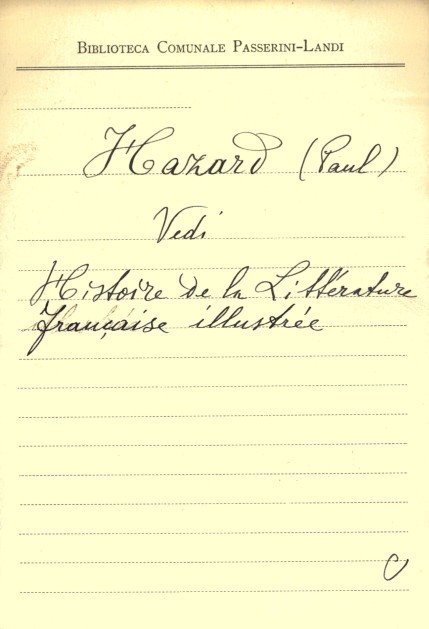 Biblioteca Comunale Passerini-Landi
Hazard (Paul)
Vedi
Histoire de la Littérature
française illustrée